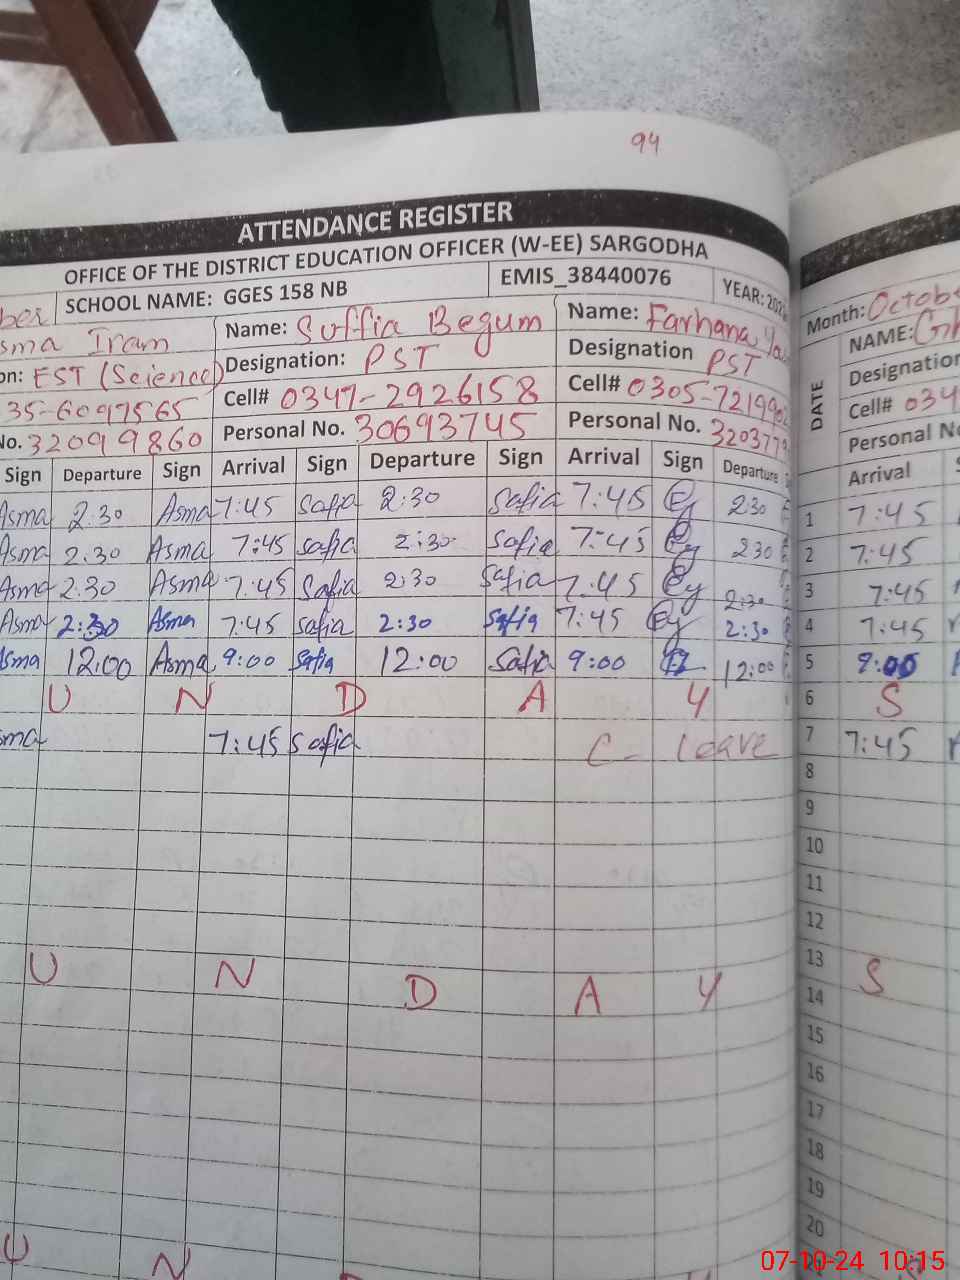 94
ATTENDANCE REGISTER
OFFICE OF THE DISTRICT EDUCATION OFFICER (W-EE) SARGODHA
SCHOOL NAME: GGES 158 NB EMIS_38440076 YEAR: 202
sma Iram Name: Suffia Begum Name: Farhana
on: EST (Science) Designation: PST Designation PST
35-6097565 Cell# 0347-2926158 Cell# 0305-721990
No. 32099860 Personal No. 30693745 Personal No. 320377
Sign Departure Sign Arrival Sign Departure Sign Arrival Sign Departure
Asma 2:30 Asma 7:45 Safia 2:30 Safia 7:45 2:30
Asma 2:30 Asma 7:45 Safia 2:30 Safia 7:45 2:30
Asma 2:30 Asma 7:45 Safia 2:30 Safia 7:45 2:30
Asma 2:30 Asma 7:45 Safia 2:30 Safia 7:45 2:30
sma 12:00 Asma 9:00 Safia 12:00 Safia 9:00 12:00
U N D A Y
sma 7:45 Safia C- Leave
U N D A Y
U N
Month: October
NAME:
Designation
Cell# 034
Personal No
DATE Arrival
1 7:45
2 7:45
3 7:45
4 7:45
5 9:00
6 S
7 7:45
8
9
10
11
12
13 S
14
15
16
17
18
19
20
07-10-24 10:15